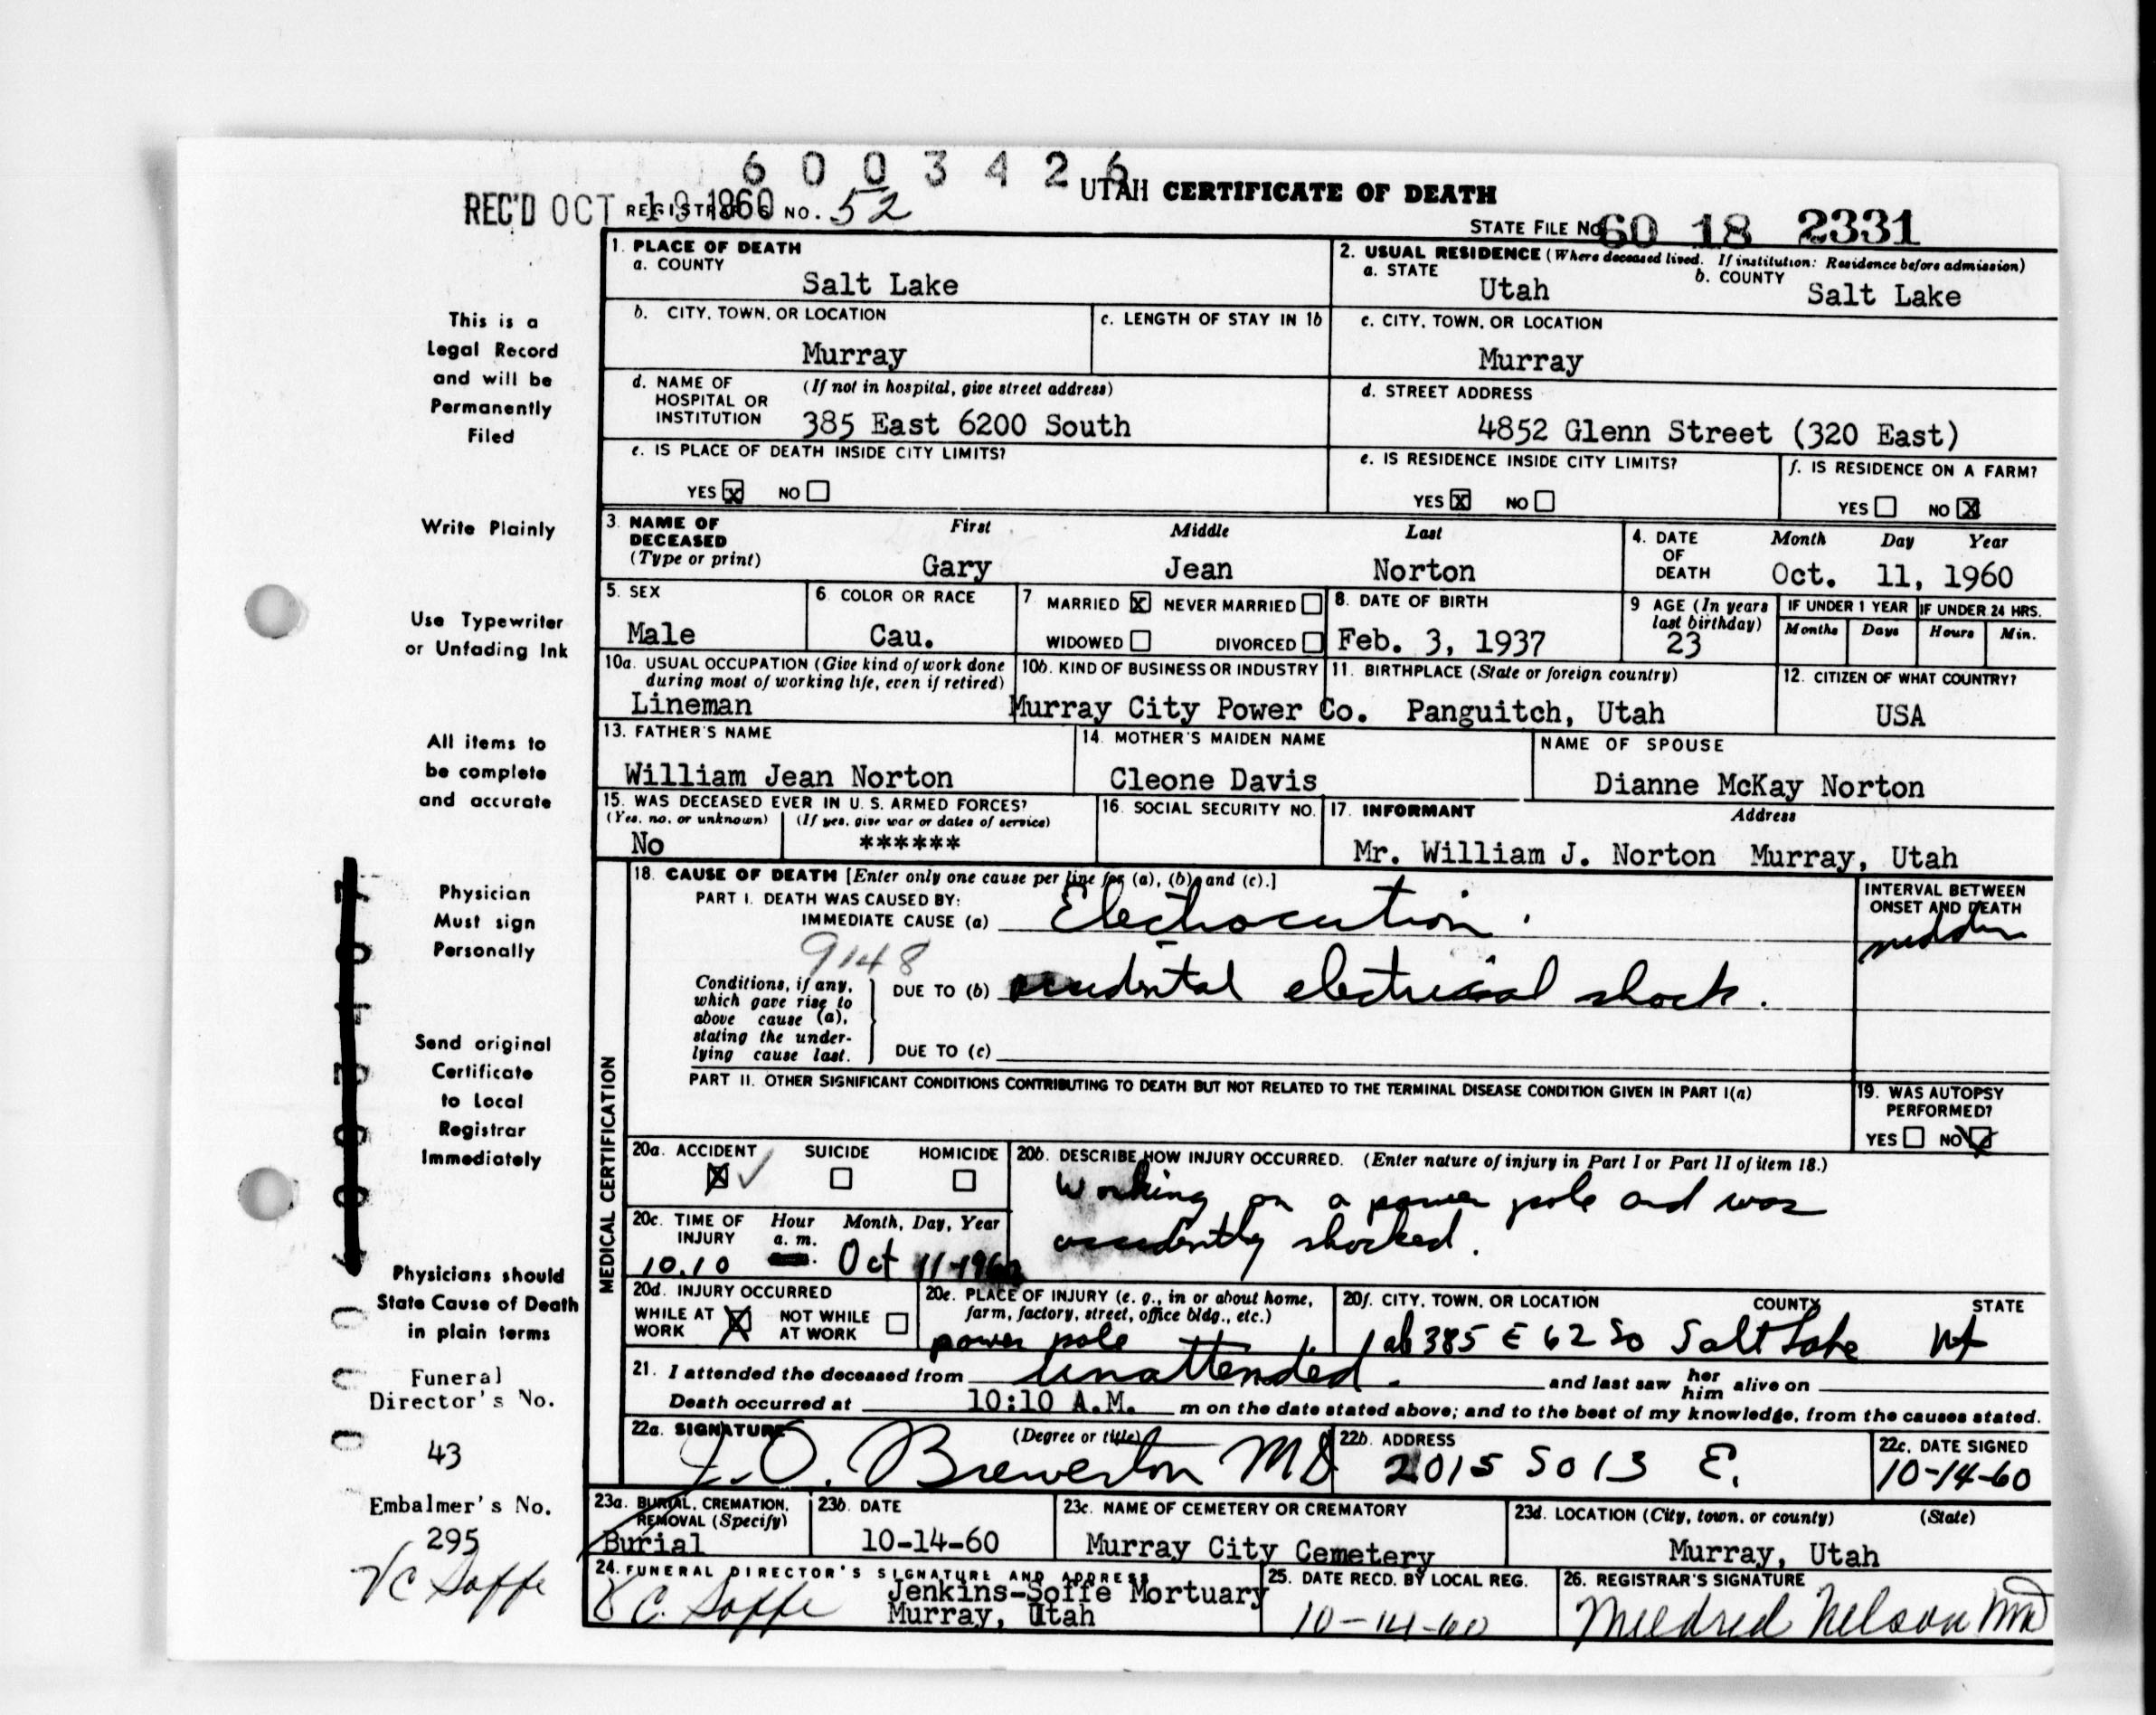 6003426
REC'D OCT 19 1960 REGISTRAR'S NO. 52
UTAH CERTIFICATE OF DEATH
STATE FILE NO. 60 18 2331
This is a
Legal Record
and will be
Permanently
Filed
Write Plainly
Use Typewriter
or Unfading Ink
All items to
be complete
and accurate
Physician
Must sign
Personally
Send original
Certificate
to Local
Registrar
Immediately
Physicians should
State Cause of Death
in plain terms
Funeral
Director's No.
43
Embalmer's No.
295
VC Soffe
1. PLACE OF DEATH
a. COUNTY
Salt Lake
2. USUAL RESIDENCE (Where deceased lived. If institution: Residence before admission)
a. STATE Utah b. COUNTY Salt Lake
b. CITY, TOWN, OR LOCATION
Murray
c. LENGTH OF STAY IN 1b
c. CITY, TOWN, OR LOCATION
Murray
d. NAME OF HOSPITAL OR INSTITUTION (If not in hospital, give street address)
385 East 6200 South
d. STREET ADDRESS
4852 Glenn Street (320 East)
e. IS PLACE OF DEATH INSIDE CITY LIMITS?
YES X NO
e. IS RESIDENCE INSIDE CITY LIMITS?
YES X NO
f. IS RESIDENCE ON A FARM?
YES NO X
3. NAME OF DECEASED (Type or print)
First Middle Last
Gary Jean Norton
4. DATE OF DEATH
Month Day Year
Oct. 11, 1960
5. SEX
Male
6. COLOR OR RACE
Cau.
7. MARRIED X NEVER MARRIED
WIDOWED DIVORCED
8. DATE OF BIRTH
Feb. 3, 1937
9. AGE (In years last birthday)
23
IF UNDER 1 YEAR IF UNDER 24 HRS.
Months Days Hours Min.
10a. USUAL OCCUPATION (Give kind of work done during most of working life, even if retired)
Lineman
10b. KIND OF BUSINESS OR INDUSTRY
Murray City Power Co.
11. BIRTHPLACE (State or foreign country)
Panguitch, Utah
12. CITIZEN OF WHAT COUNTRY?
USA
13. FATHER'S NAME
William Jean Norton
14. MOTHER'S MAIDEN NAME
Cleone Davis
NAME OF SPOUSE
Dianne McKay Norton
15. WAS DECEASED EVER IN U. S. ARMED FORCES?
(Yes, no, or unknown) (If yes, give war or dates of service)
No ******
16. SOCIAL SECURITY NO.
17. INFORMANT Address
Mr. William J. Norton Murray, Utah
MEDICAL CERTIFICATION
18. CAUSE OF DEATH [Enter only one cause per line for (a), (b), and (c).]
PART I. DEATH WAS CAUSED BY:
IMMEDIATE CAUSE (a) Electrocution.
INTERVAL BETWEEN ONSET AND DEATH
sudden
9148
Conditions, if any, which gave rise to above cause (a), stating the underlying cause last.
DUE TO (b) accidental electrical shock.
DUE TO (c)
PART II. OTHER SIGNIFICANT CONDITIONS CONTRIBUTING TO DEATH BUT NOT RELATED TO THE TERMINAL DISEASE CONDITION GIVEN IN PART I(a)
19. WAS AUTOPSY PERFORMED?
YES NO
20a. ACCIDENT SUICIDE HOMICIDE
20b. DESCRIBE HOW INJURY OCCURRED. (Enter nature of injury in Part I or Part II of item 18.)
Working on a power pole and was
accidently shocked.
20c. TIME OF INJURY Hour Month, Day, Year
10.10 a. m. Oct 11-1960
20d. INJURY OCCURRED
WHILE AT WORK X NOT WHILE AT WORK
20e. PLACE OF INJURY (e. g., in or about home, farm, factory, street, office bldg., etc.)
power pole
20f. CITY, TOWN, OR LOCATION COUNTY STATE
385 E 62 So Salt Lake Ut
21. I attended the deceased from unattended. and last saw her him alive on
Death occurred at 10:10 A.M. m on the date stated above; and to the best of my knowledge, from the causes stated.
22a. SIGNATURE (Degree or title)
J. O. Brewerton MD
22b. ADDRESS
2015 So 13 E.
22c. DATE SIGNED
10-14-60
23a. BURIAL, CREMATION, REMOVAL (Specify)
Burial
23b. DATE
10-14-60
23c. NAME OF CEMETERY OR CREMATORY
Murray City Cemetery
23d. LOCATION (City, town, or county) (State)
Murray, Utah
24. FUNERAL DIRECTOR'S SIGNATURE AND ADDRESS
VC. Soffe Jenkins-Soffe Mortuary
Murray, Utah
25. DATE RECD. BY LOCAL REG.
10-14-60
26. REGISTRAR'S SIGNATURE
Mildred Nelson MD